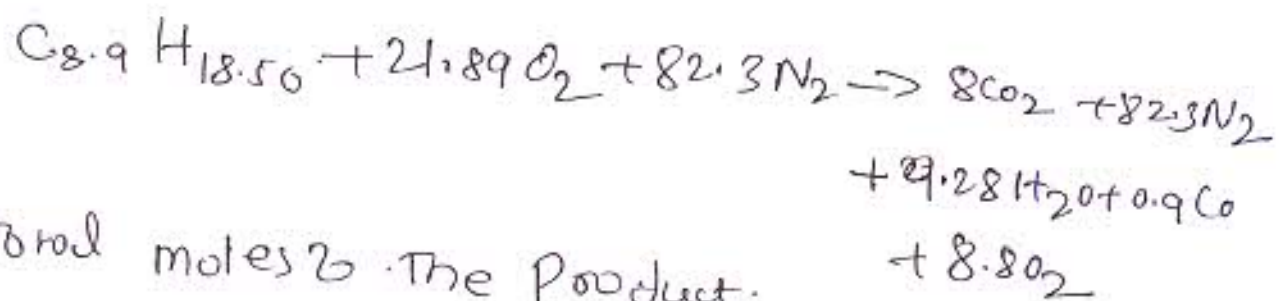 C8.9 H18.50 + 21.89 O2 + 82.3 N2 -> 8CO2 + 82.3N2
+ 9.28 H2O + 0.9 CO
+ 8.8O2
moles The Product.